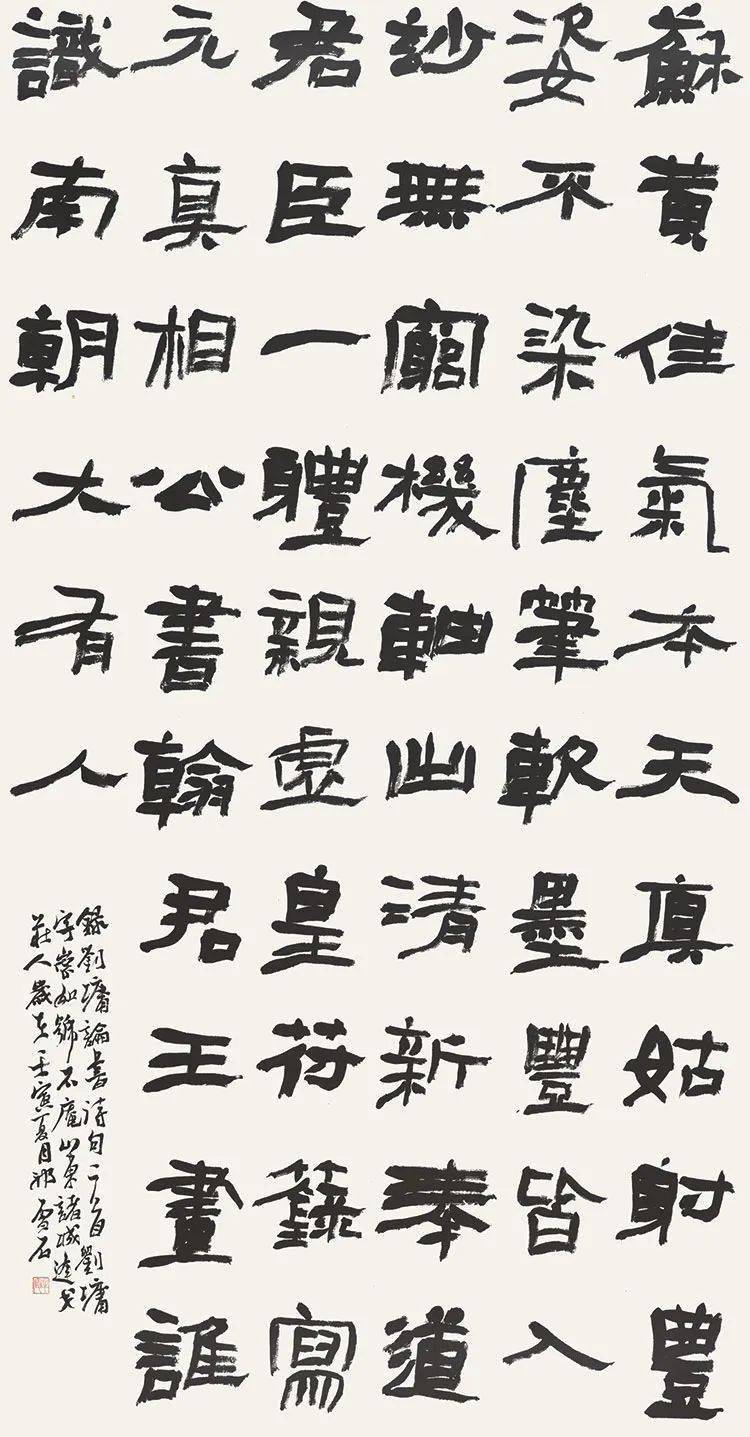 蘇黃佳氣本天真姑射豐
姿不染塵筆軟墨豐皆入
妙無窮機軸出清新奉道
君臣一體親虛皇符籙寫
元真相公書翰君王畫誰
識南朝大有人
錄劉墉論書詩句二首劉墉
字崇如號石庵山東諸城逄戈
莊人歲在壬寅夏月